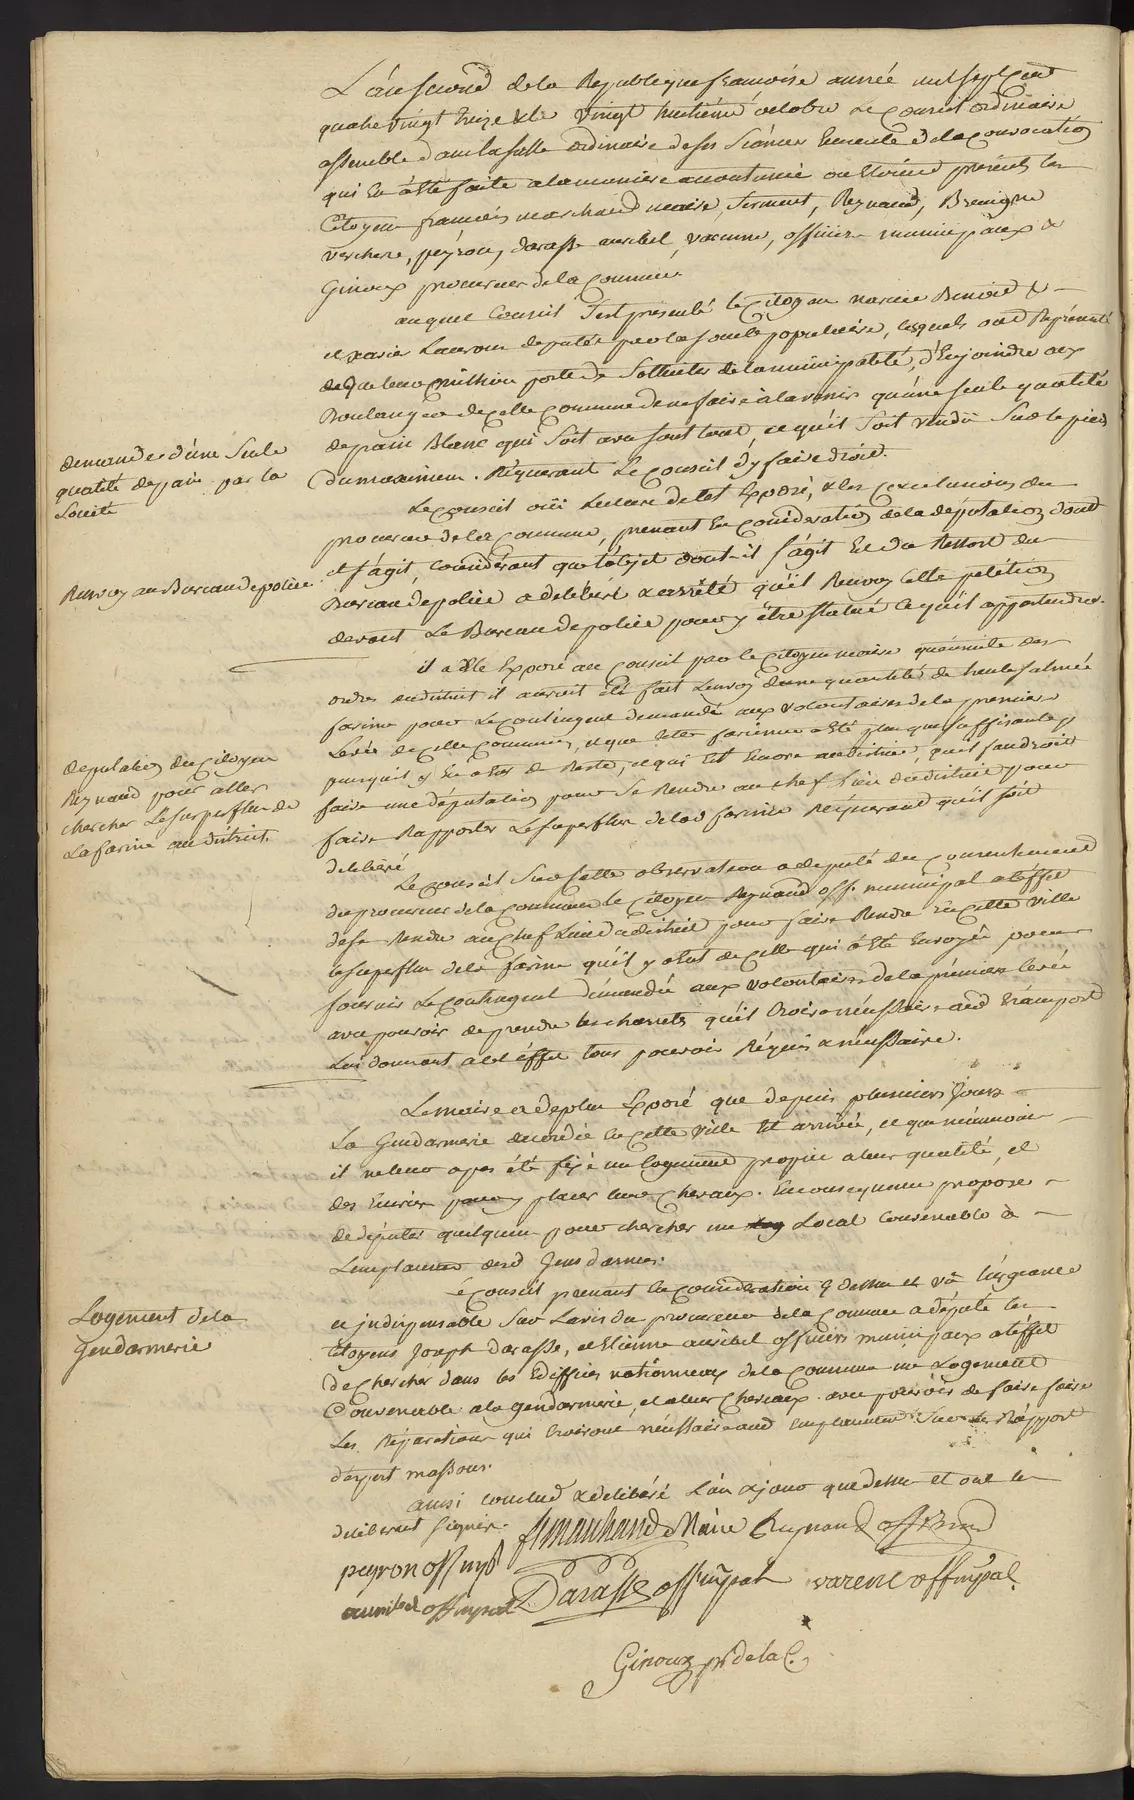 L'an second de la Republique francoise année mil sept cent
quatre vingt treize & le vingt huitième octobre Le Conseil ordinaire
assemblé dans la salle ordinaire de ses séances Ensuite de la Convocation
qui en a été faite a la maniere accoutumée ou étoient présents les
Citoyens françois marchand maire, serment, Reynaud, Benigne
verchere, peyron, darasse auribel, varenne, officiers municipaux &
Ginoux procureur de la Commune
auquel Conseil s'est présenté le Citoyen Benoid &
xavier députés par la société populaire, lesquels ont Représenté
que leur mission porte de solliciter de la municipalité, d'Enjoindre aux
Boulangers de cette Commune de ne faire à l'avenir qu'une seule qualité
de pain Blanc qui soit avec tout, et qu'il soit vendu sur le pied
du maximum. Réquerant Le Conseil d'y faire droit.
demande d'une seule
qualité de pain par la
Société
Le Conseil oüi Lecture de cet Exposé, & les Conclusions du
procureur de la Commune, prenant en Considération de la députation dont
il s'agit, considérant que l'objet dont il s'agit Est du Ressort du
Bureau de police a délibéré & arrêté qu'il Renvoy Cette petition
devant Le Bureau de police pour y être statué ce qu'il appartiendra.
Renvoy au Bureau de police
il a été Exposé au Conseil par le Citoyen maire qu'ensuite des
ordres du district il auroit été fait L'envoy d'une quantité de salmée
farine pour Le Contingent demandé aux volontaires de la premiere
Levée de cette Commune, et que cette farine a été plus que suffisante,
puisqu'il y En a eu de Reste, et qui est Encore au district, qu'il faudroit
faire une députation pour se Rendre au chef Lieu du district pour
faire Rapporter Le superflu de lad farine Réquerant qu'il soit
délibéré
deputation du Citoyen
Reynaud pour aller
chercher Le superflu de
La farine au district.
Le Conseil Sur Cette observation a député du Consentement
du procureur de la Commune le Citoyen Reynaud off. municipal à l'éffet
de se Rendre au Chef Lieu du district pour faire Rendre En Cette ville
le superflu de la farine qu'il y a eu de celle qui a été Envoyée pour
fournir Le Contingent demandé aux volontaires de la premiere levée
avec pouvoir de prendre les charrettes qu'il Croira nécessaires aud transport
Lui donnant a cet éffet tous pouvoir Réquis & nécessaire.
Le maire a de plus Exposé que depuis plusieurs jours
La Gendarmerie accordée En Cette ville Est arrivée, et que néanmoins
il ne leur a pas été fixé un logement propre a leur qualité, et
des Ecuries pour y placer leurs Chevaux. En consequence propose
de députer quelqu'un pour chercher un Local Convenable à
L'emplacement desd Jens d'armes.
Le Conseil prenant En Considération Ci dessus et vû l'urgence
et indispensable Sur L'avis du procureur de la Commune a député les
Citoyens Joseph Darasse, et Etienne auribel officiers municipaux à l'éffet
de Chercher dans les Ediffices nationaux de la Commune un Logement
Convenable a la gendarmerie, et a leur Chevaux. avec pouvoir de faire faire
Les Réparations qui Croiront nécessaire aud Emplacement Sur Le Rapport
d'expert massons.
Logement de la
Gendarmerie
ainsi conclud & délibéré L'an & jour que dessus et ont les
délibérant signés.
f. marchand Maire Reynaud off mun
peyron off mpal Darasse off mpal varene off mpal.
auribel off mpal
Ginoux pr de la C.